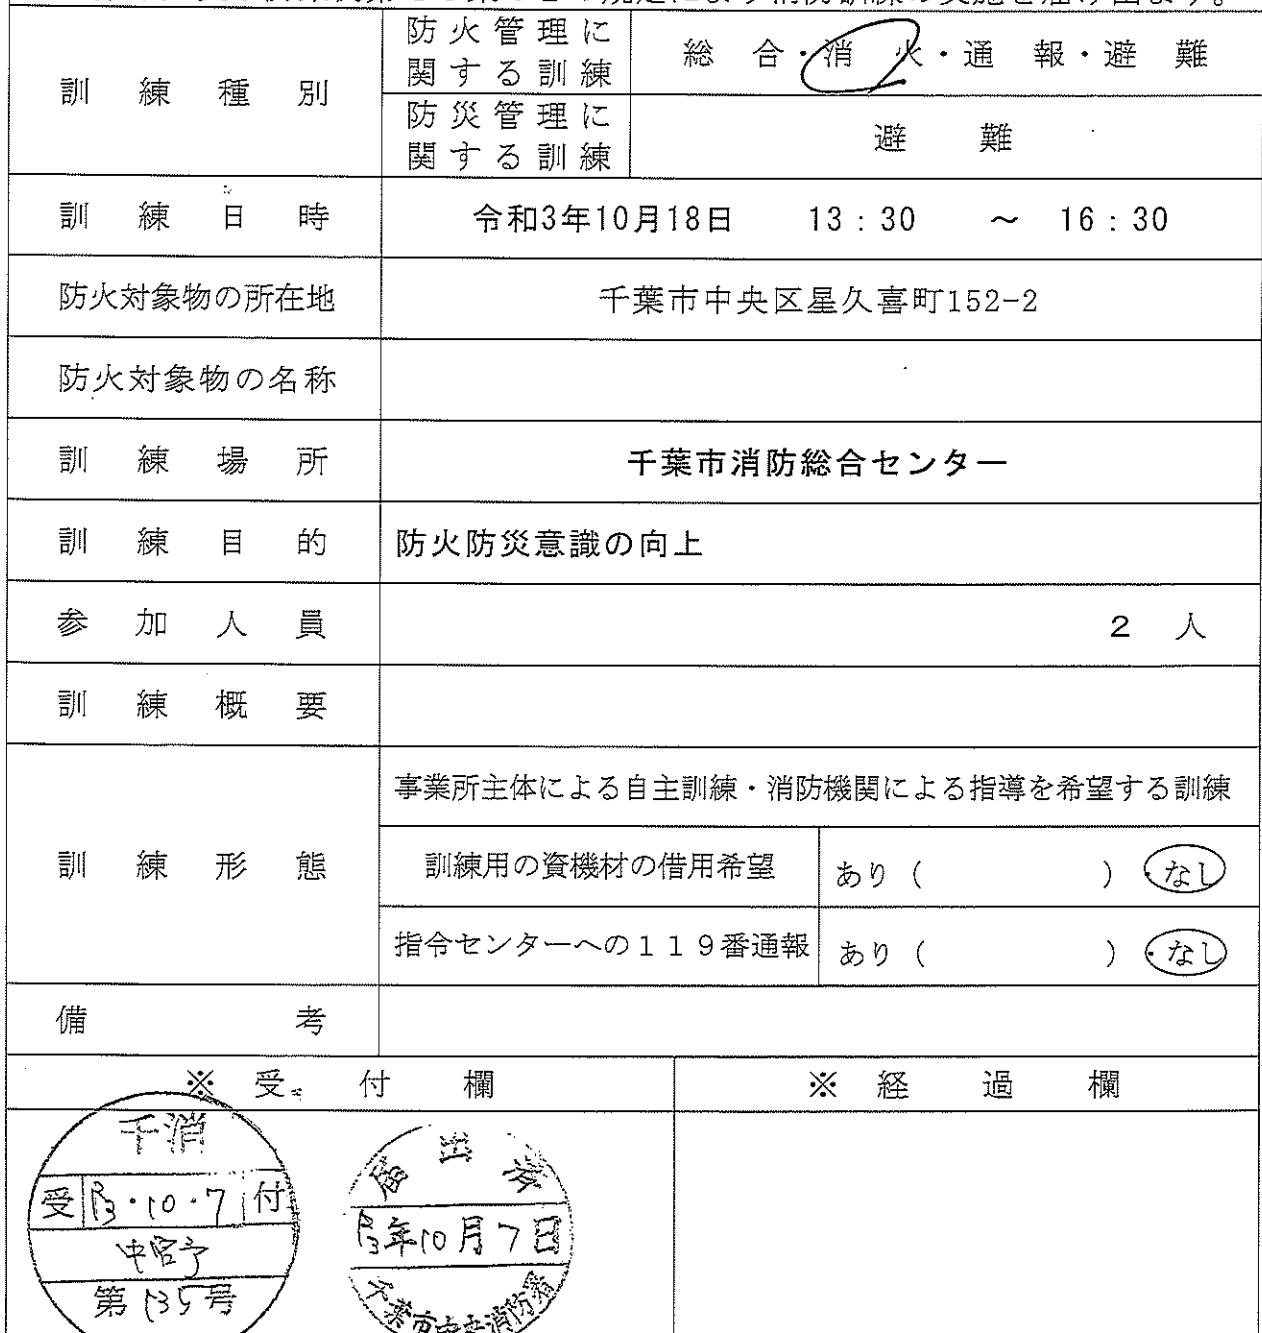 の規定により消防訓練の実施を届け出ます。
訓練種別
防火管理に
関する訓練
総合・消火・通報・避難
防災管理に
関する訓練
避難
訓練日時
令和3年10月18日 13:30 ～ 16:30
防火対象物の所在地
千葉市中央区星久喜町152-2
防火対象物の名称
訓練場所
千葉市消防総合センター
訓練目的
防火防災意識の向上
参加人員
2 人
訓練概要
訓練形態
事業所主体による自主訓練・消防機関による指導を希望する訓練
訓練用の資機材の借用希望
あり( )・なし
指令センターへの119番通報
あり( )・なし
備考
※受付欄
※経過欄
千消
受 R3・10・7 付
第135号
届出済
R3年10月7日
千葉市中央消防署